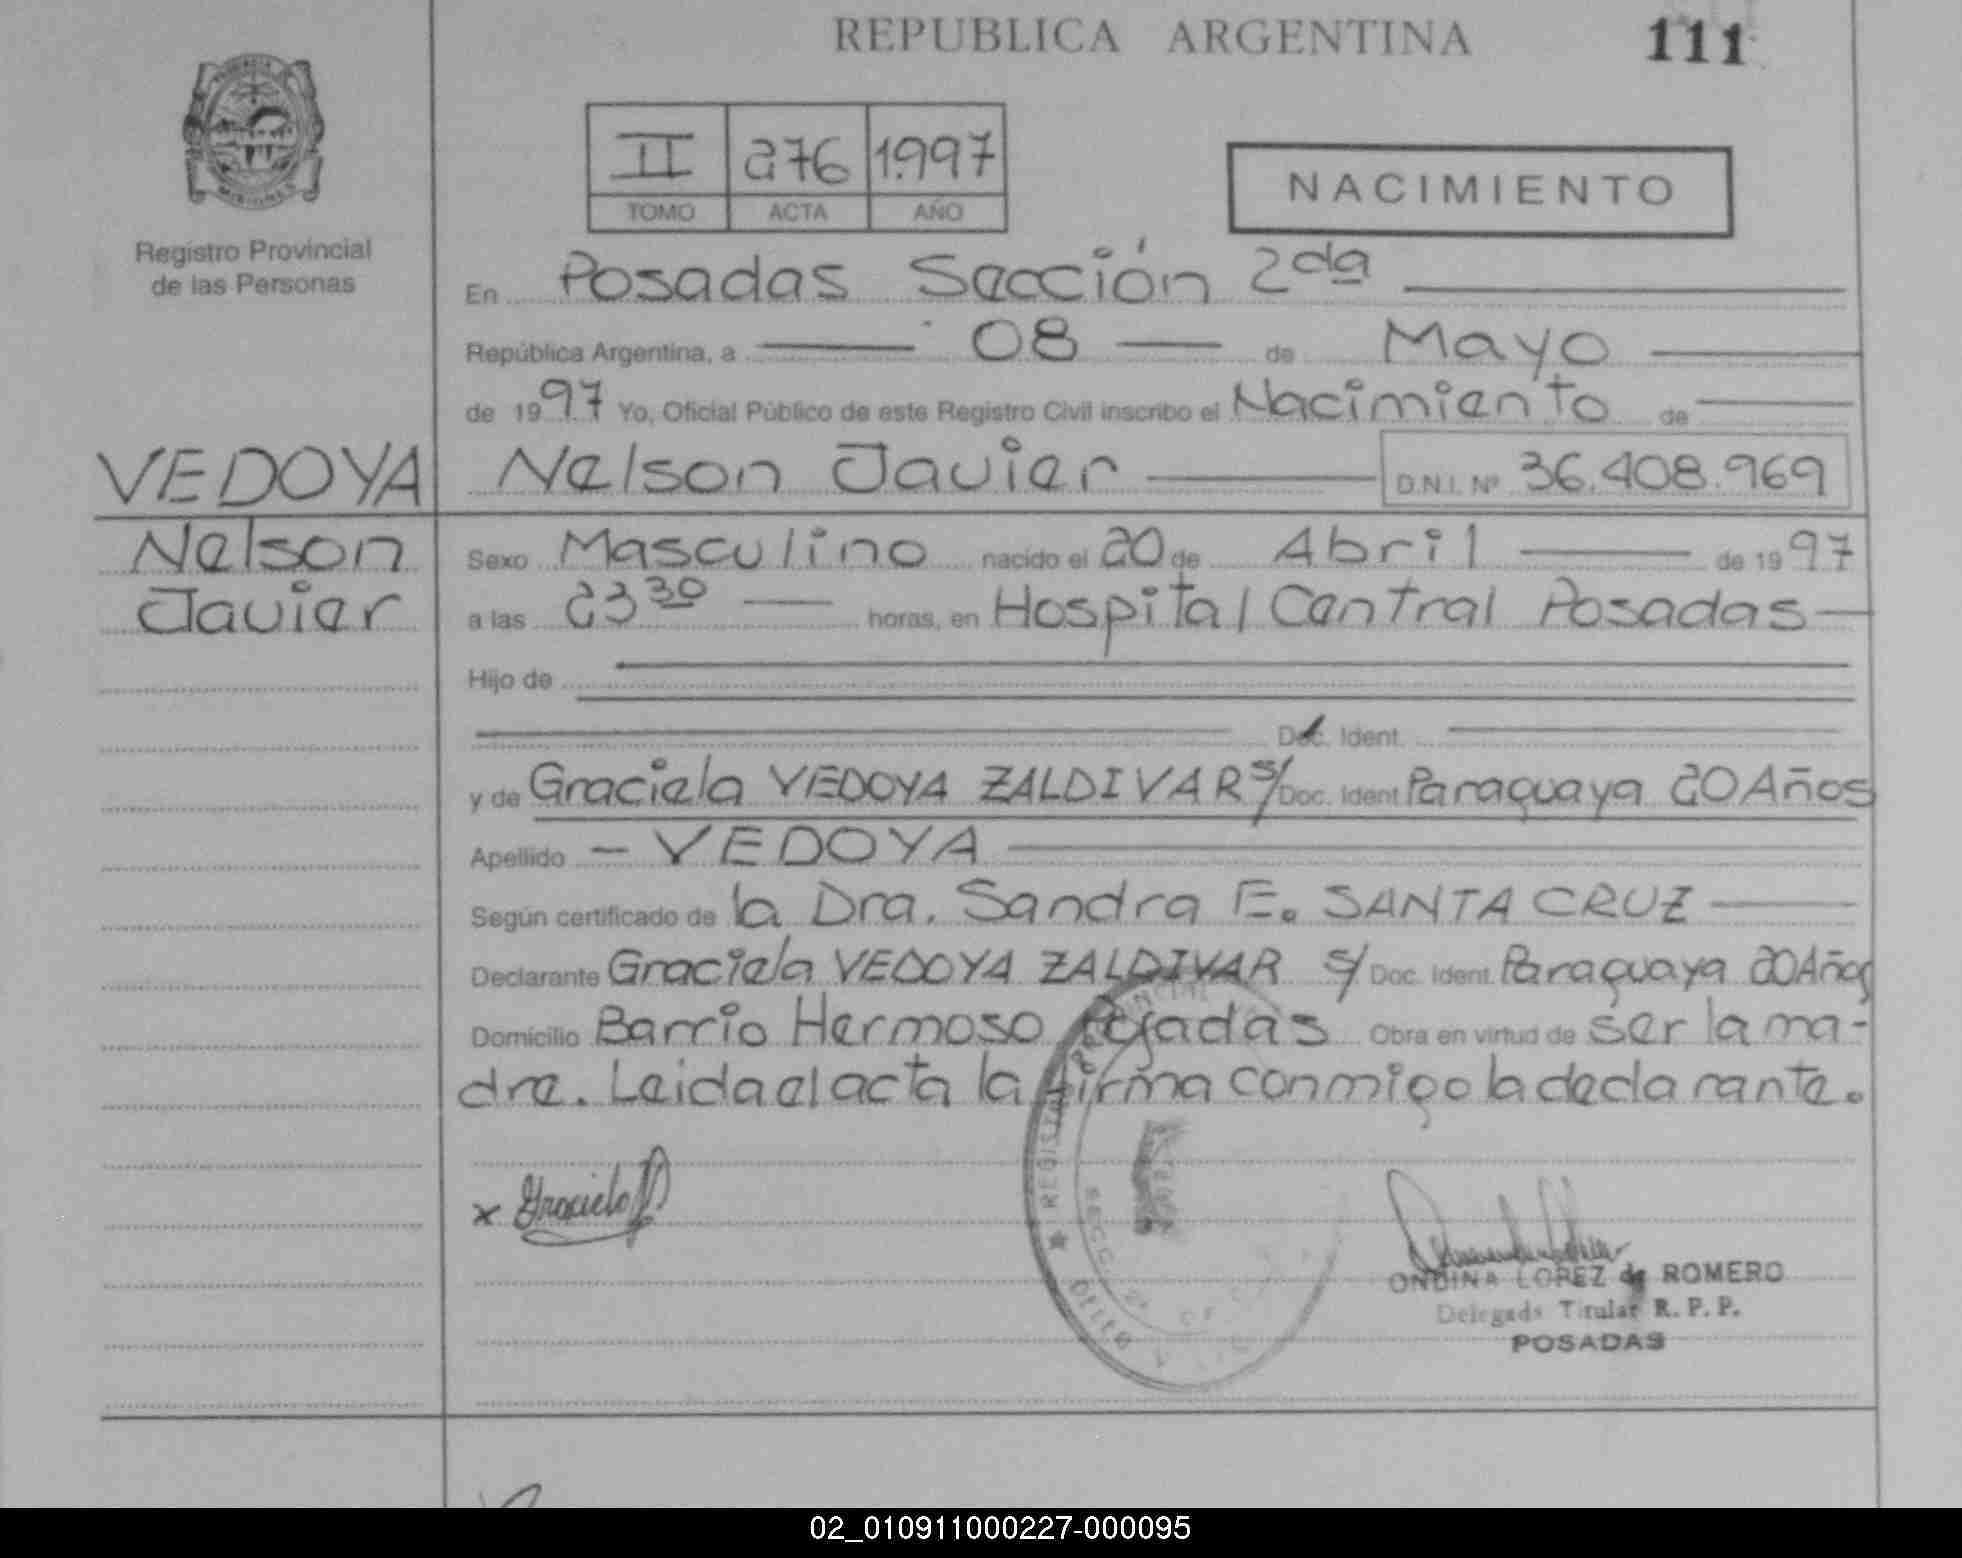 REPUBLICA ARGENTINA
111
Registro Provincial
de las Personas
II 276 1.997
TOMO ACTA AÑO
NACIMIENTO
En Posadas Sección 2da
República Argentina, a 08 de Mayo
de 1997 Yo, Oficial Público de este Registro Civil inscribo el Nacimiento de
VEDOYA Nelson Javier D.N.I. Nº 36.408.969
Nelson
Javier
Sexo Masculino nacido el 20 de Abril de 1997
a las 23 30 horas, en Hospital Central Posadas
Hijo de
Doc. Ident.
y de Graciela VEDOYA ZALDIVAR s/ Doc. Ident Paraguaya 20 Años
Apellido - VEDOYA
Según certificado de la Dra. Sandra E. SANTA CRUZ
Declarante Graciela VEDOYA ZALDIVAR s/ Doc. Ident. Paraguaya 20 Años
Domicilio Barrio Hermoso Posadas Obra en virtud de ser la ma-
dre. Leida el acta la firma conmigo la declarante.
x Graciela
ONDINA LOPEZ de ROMERO
Delegada Titular R. P. P.
POSADAS
02_010911000227-000095